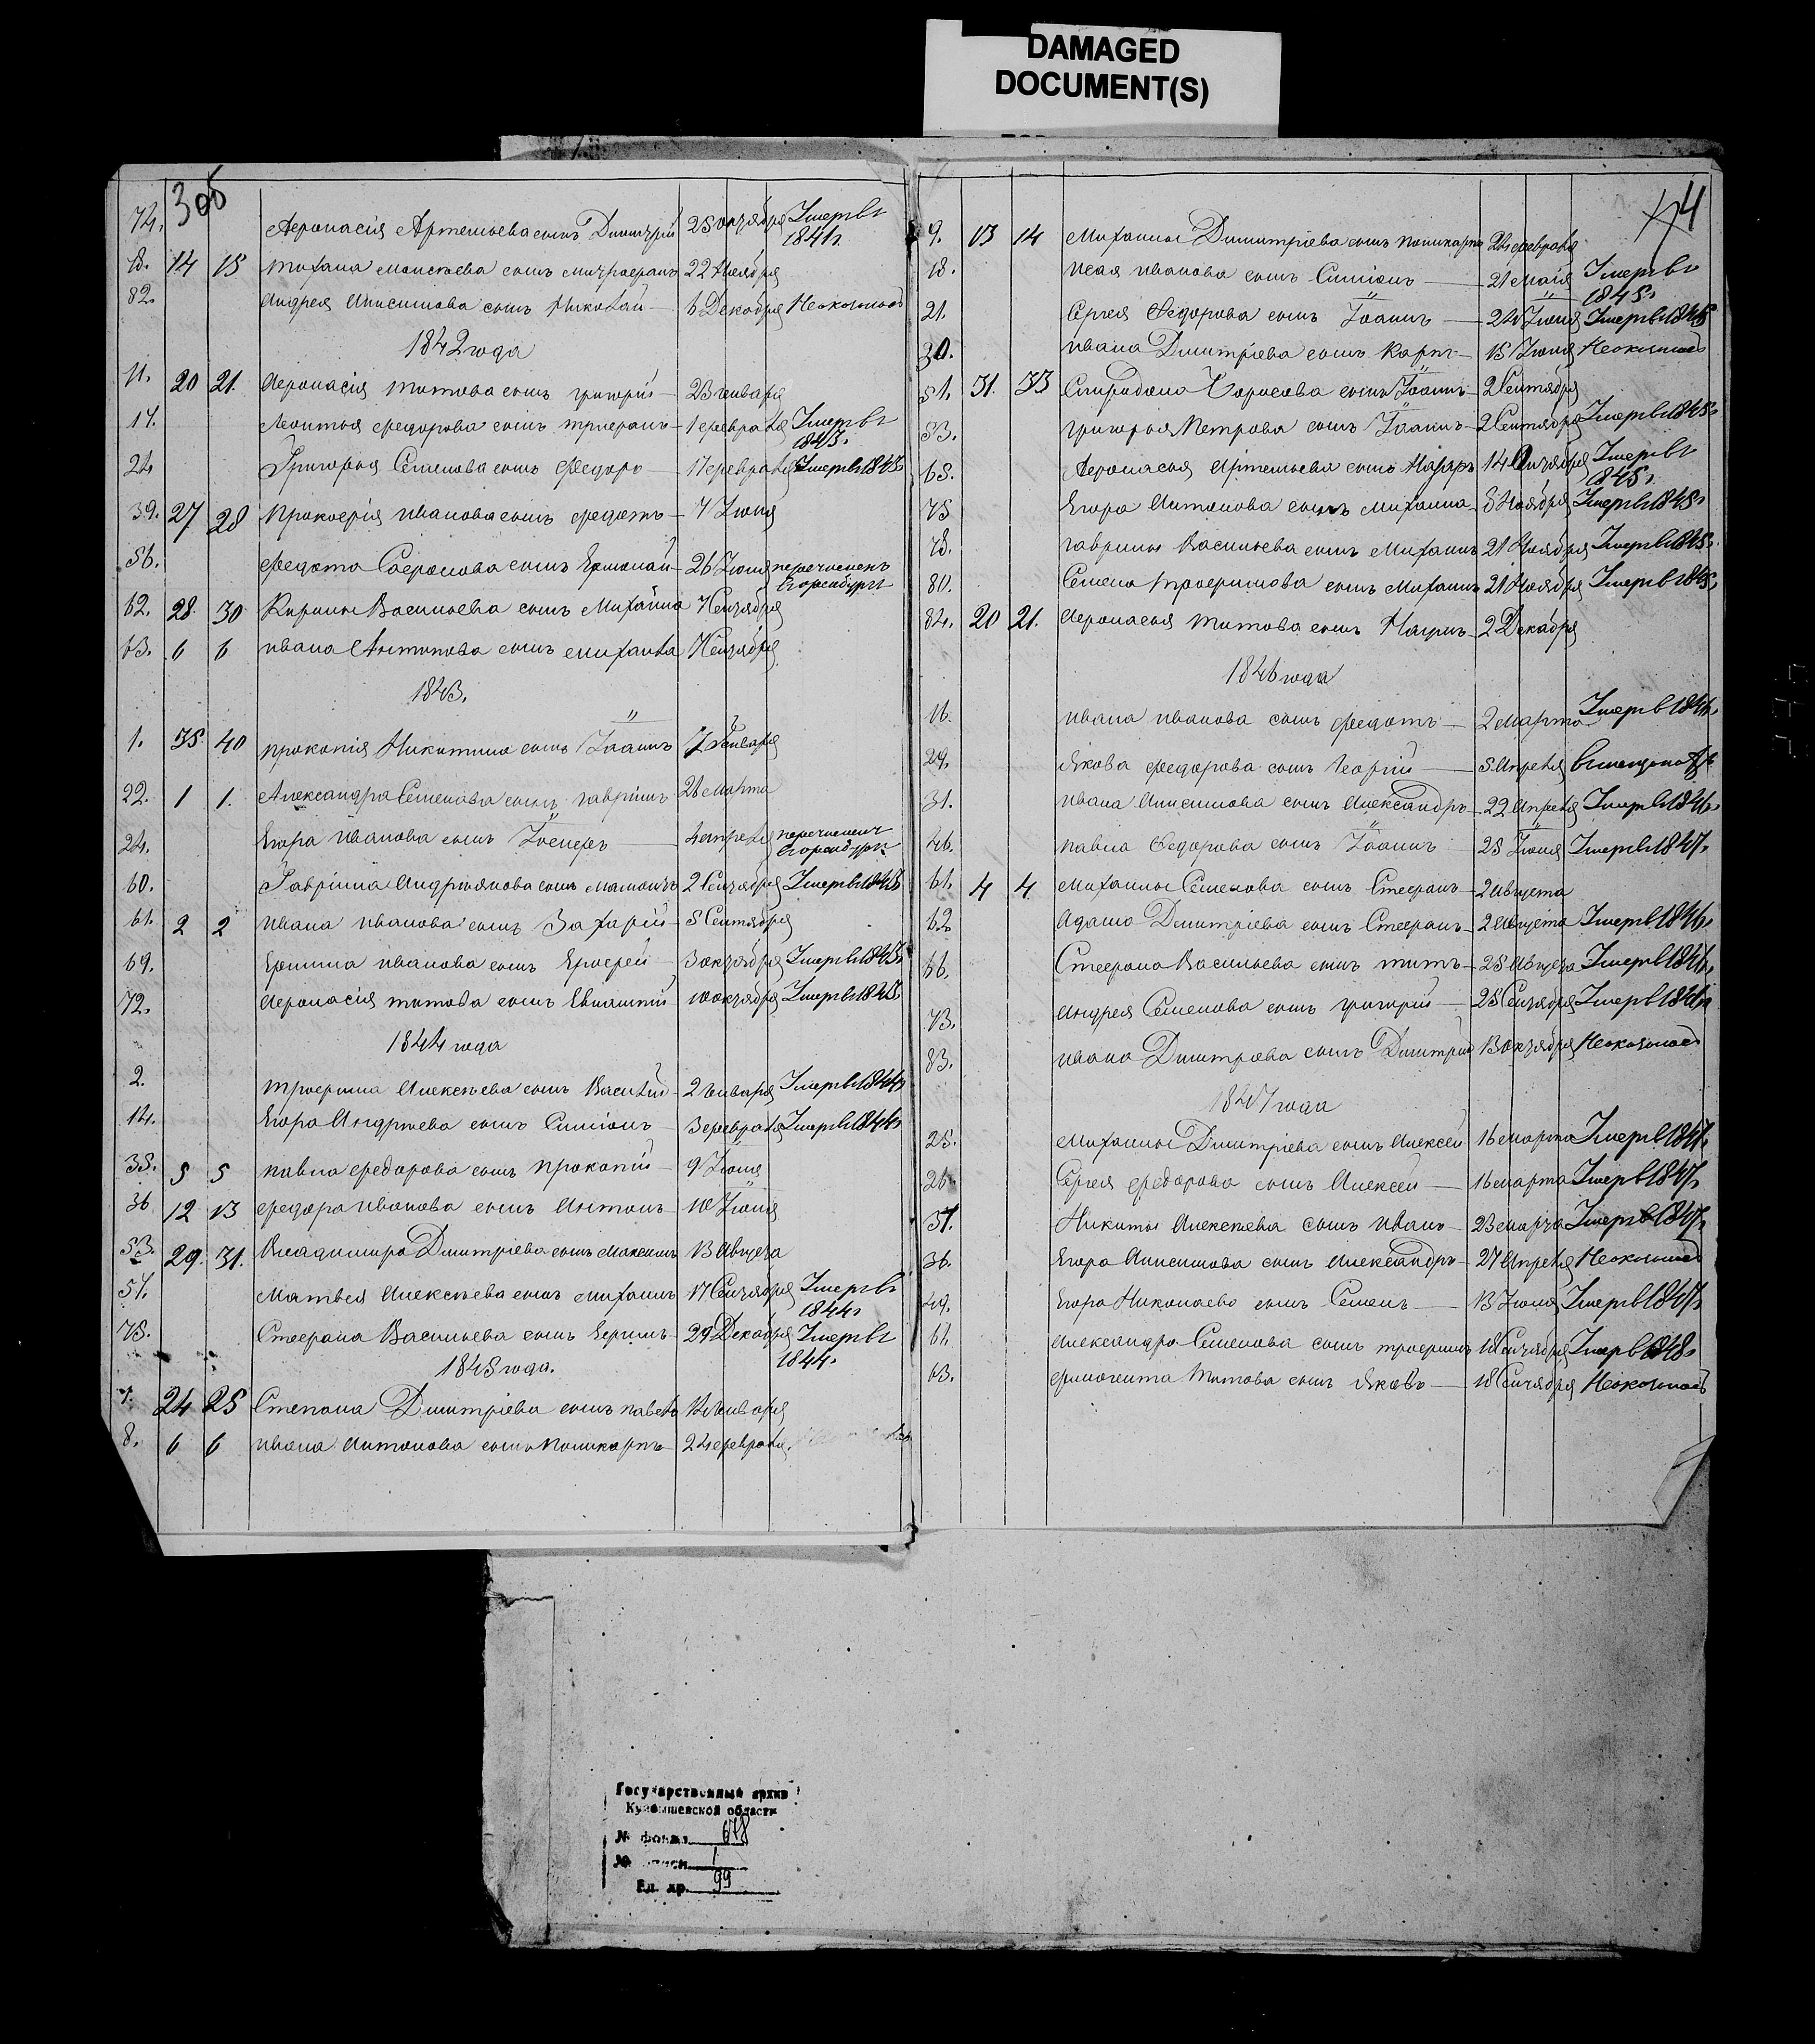 DAMAGED
DOCUMENT(S)
306
74. Афонасія Артемьева сынъ Димитрій 25 октября Умеръ въ
1841 г.
78. 14 15 тихана моисеева сынъ митрофанъ 22 Ноября
82. андрея Анисимова сынъ Николай 6 Декабря Неокольной
1842 года
11. 20 21. Афонасія титова сынъ григорій 23 генваря
17. Леонтья федорова сынъ трифанъ 1 февраля Умеръ въ
1843.
24 Григорья Семенова сынъ Федоръ 17 февраля Умеръ в 1843
39. 27 28 Прокофія иванова сынъ федотъ 7 Іюня
56. федота Софронова сынъ Ермолай 26 Іюня перечисленъ
62. 28. 30 Кирилы Васильева сынъ Михаила 7 Сентября
63. 6 6 ивана Антонова сынъ михаила 7 Сентября
1843.
1. 35 40 прокопія Никитина сынъ Іоаннъ 7 Генваря
22. 1 1. Александра Семенова сынъ гаврілъ 26 марта
24. Егора иванова сынъ Іосифъ 4 апреля перечисленъ
60. Гавріила Андриянова сынъ 2 Сентября Умеръ в 1843
61. 2 2 ивана иванова сынъ Захарій 5 Сентября
69. Ермила иванова сынъ Ерофей 3 октября Умеръ в 1843
72. Афонасія титова сынъ Евлампій 10 октября Умеръ в 1843
1844 года
2. трофима Алексеева сынъ Василій 2 генваря Умеръ в 1844
14. Егора Андреева сынъ Симіонъ 3 февраля Умеръ в 1844
35. 5 5 павла федорова сынъ прокопій 9 Іюня
36 12 13 федора иванова сынъ Антонъ 10 Іюня
53. 29. 31. Владимира Димитріева сынъ Максимъ 13 Августа
57. Матвея Алексеева сынъ михаилъ 17 Сентября Умеръ въ
1844
78. Стефана Васильева сынъ Ефимъ 29 Декабря Умеръ въ
1844.
1845 года.
7. 24 25 Степана Димитріева сынъ павелъ 12 генваря
8. 6 6 ивана Антонова сынъ поликарпъ 24 февраля.
9. 13 14 Михаилы Димитріева сынъ поликарпъ 24 февраля
18. исая иванова сынъ Симіонъ 21 Маія Умеръ въ
1845
21. Сергея Федорова сынъ Іоаннъ 24 Іюня Умеръ в 1845
30. ивана Димитріева сынъ Карпъ 15 Іюня Неокольной
51. 31. 33 Спиридона Борисова сынъ Іоаннъ 2 Сентября
53. григорья Петрова сынъ Іоаннъ 2 Сентября Умеръ в 1845
65. Афонасья Артемьева сынъ Назаръ 14 Октября Умеръ въ
1845
75 Егора Антонова сынъ михаила 8 Ноября Умеръ в 1845
78. гаврилы Васильева сынъ Михаилъ 21 Ноября Умеръ в 1845
80. Семена трофимова сынъ Михаилъ 21 Ноября Умеръ в 1845
84. 20 21. Афонасья титова сынъ Наумъ 2 Декабря
1846 года
16. ивана иванова сынъ федотъ 2 марта Умеръ в 1846
29. Якова федорова сынъ Георгій 5 Апреля
31. ивана Анисимова сынъ Александръ 22 Апреля Умеръ в 1846
46. павла Федорова сынъ Іоаннъ 25 Іюня Умеръ в 1847
61. 4 4 Михаилы Семенова сынъ Стефанъ 2 августа
62 Адама Димитріева сынъ Стефанъ 2 августа Умеръ в 1846
66. Стефана Васильева сынъ титъ 25 Августа Умеръ в 1846
73. Андрея Семенова сынъ григорій 25 Сентября Умеръ в 1846
83. ивана Димитріева сынъ Димитрій 13 октября Неокольной
1847 года
25. Михаилы Димитріева сынъ Алексей 16 марта Умеръ в 1847
26 Сергея федорова сынъ Алексей 16 марта Умеръ в 1847
31. Никиты Алексеева сынъ иванъ 23 марта Умеръ в 1847
36. Егора Анисимова сынъ Александръ 27 Апреля Неокольной
49. Егора Николаева сынъ Семенъ 13 Іюня Умеръ в 1847
61. Александра Семенова сынъ трофимъ 18 Сентября Умеръ в 1848
63. филогента титова сынъ Яковъ 18 Сентября Неокольной
Государственный архив
Куйбышевской области
№ фонда 678
№ описи 1
Ед. хр. 99